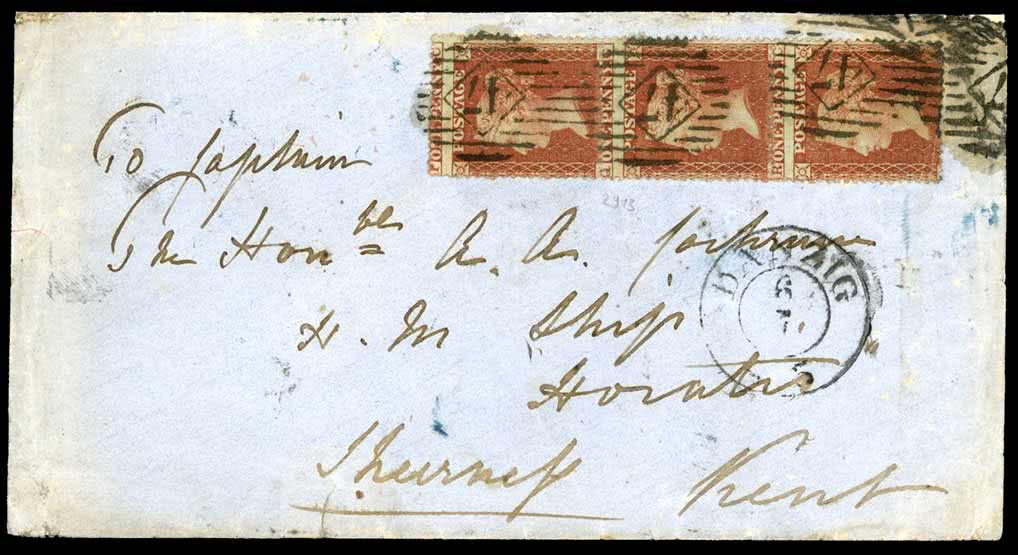 POSTAGE ONE PENNY
POSTAGE ONE PENNY
POSTAGE ONE PENNY
2913
To Captain
The Honble A. A. Cochrane
H. M Ship
Horatio
Sheerness Kent
DANZIG